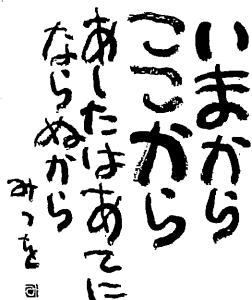 いまから
ここから
あしたはあてに
ならぬから
みつを